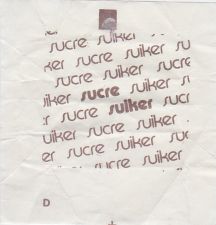 sucre suiker
sucre suiker su
sucre suiker
suiker sucre sui
ker sucre suiker
sucre suiker sucr
uiker sucre suiker
sucre suiker
D